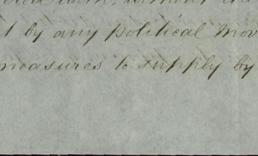 without
t by any political mov
measures to supply by